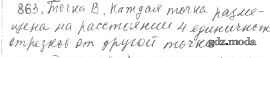 863. Точка В. Каждая точка разме-
щена на расстоянии 4 единичных
отрезков от другой точки.
gdz.moda